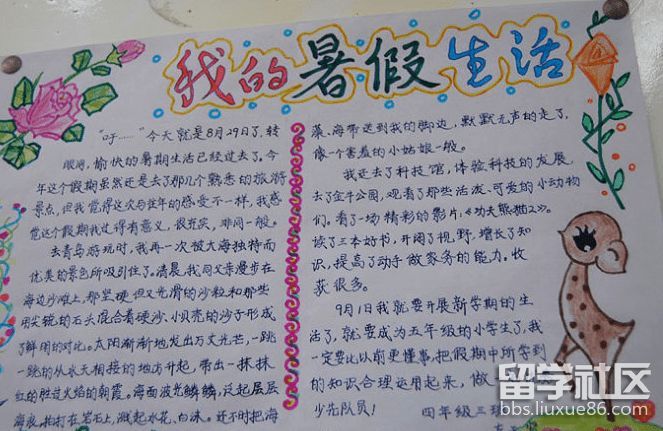 我的暑假生活
“吁……”今天就是8月29日了,转
眼间,愉快的暑期生活已经过去了。今
年这个假期虽然还是去了那几个熟悉的旅游
景点,但我觉得这次与往年的感受不一样,我感
觉这个假期我过得有意义,很充实,非同一般。
去青岛游玩时,我再一次被大海独特而
优美的景色所吸引住了。清晨,我同父亲漫步在
海边沙滩上,那坚硬但又光滑的沙粒和那些
用尖锐的石头混合着硬沙、小贝壳的沙子形成
了鲜明的对比。太阳渐渐地发出万丈光芒,一跳
一跳的从水天相接的地方升起,带出一抹抹
红的胜过火焰的朝霞。海面波光鳞鳞,泛起层层
海浪,拍打在岩石上,溅起水花、白沫。还不时把海
藻、海带送到我的脚边,默默无声的走了,
像一个害羞的小姑娘一般。
我还去了科技馆,体验科技的发展,
去了金牛公园,观看了那些活泼、可爱的小动物
们。看了一场精彩的影片,《功夫熊猫2》。
读了三本好书,开阔了视野,增长了知
识,提高了动手做家务的能力。收
获很多。
9月1日我就要开展新学期的生
活了,就要成为五年级的小学生了,我
一定要比以前更懂事,把假期中所学到
的知识合理运用起来,做
少先队员!
四年级三班
留学社区
bbs.liuxue86.com